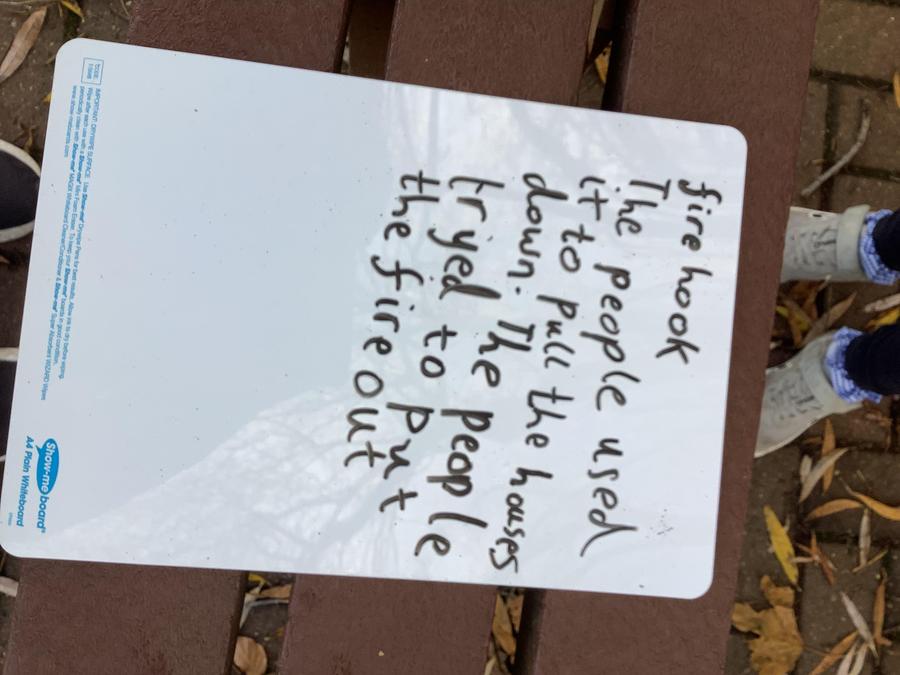 fire hook
The people used
it to pull the houses
down. The people
tryed to put
the fire out
IMPORTANT: DRYWIPE SURFACE. Use Show-me® Drywipe Pens for best results. Allow ink to dry before wiping.
Wipe after each use with a Show-me® Mini Foam Eraser. To keep your Show-me® boards in good condition,
periodically clean with Show-me® Whiteboard Cleaner/Conditioner & Show-me® Super Absorbent WIZARD Wipes
www.show-meboards.com
Show-me board®
A4 Plain Whiteboard